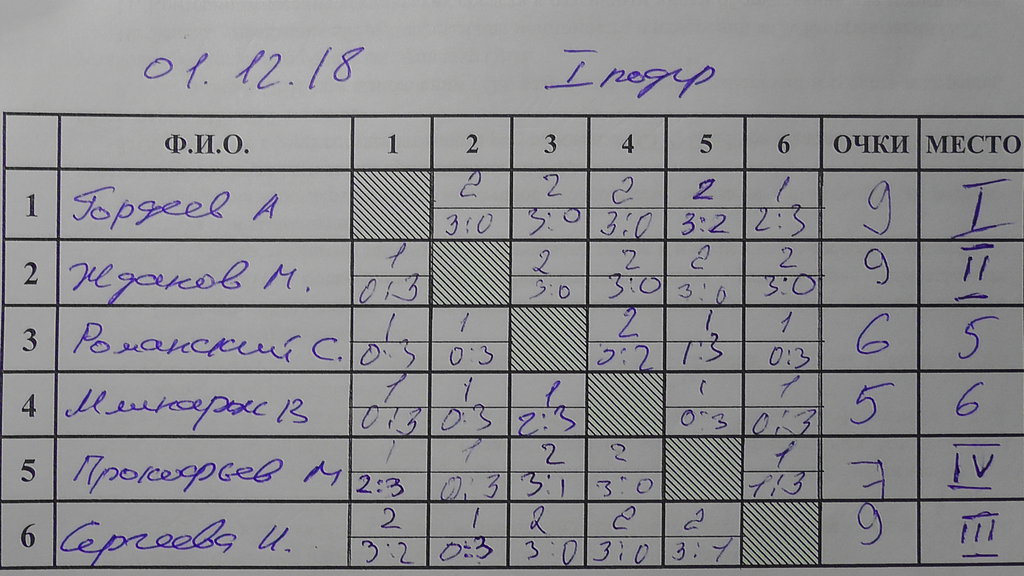 01.12.18 I подгр
Ф.И.О. 1 2 3 4 5 6 ОЧКИ МЕСТО
1 Гордеев А 2 3:0 2 3:0 2 3:0 2 3:2 1 2:3 9 I
2 Жданов М. 1 0:3 2 3:0 2 3:0 2 3:0 2 3:0 9 II
3 Романский С. 1 0:3 1 0:3 2 0:2 1 1:3 1 0:3 6 5
4 В 1 0:3 1 0:3 1 2:3 1 0:3 1 0:3 5 6
5 Прокофьев М 1 2:3 1 0:3 2 3:1 2 3:0 1 1:3 7 IV
6 Сергеева И. 2 3:2 1 0:3 2 3:0 2 3:0 2 3:1 9 III